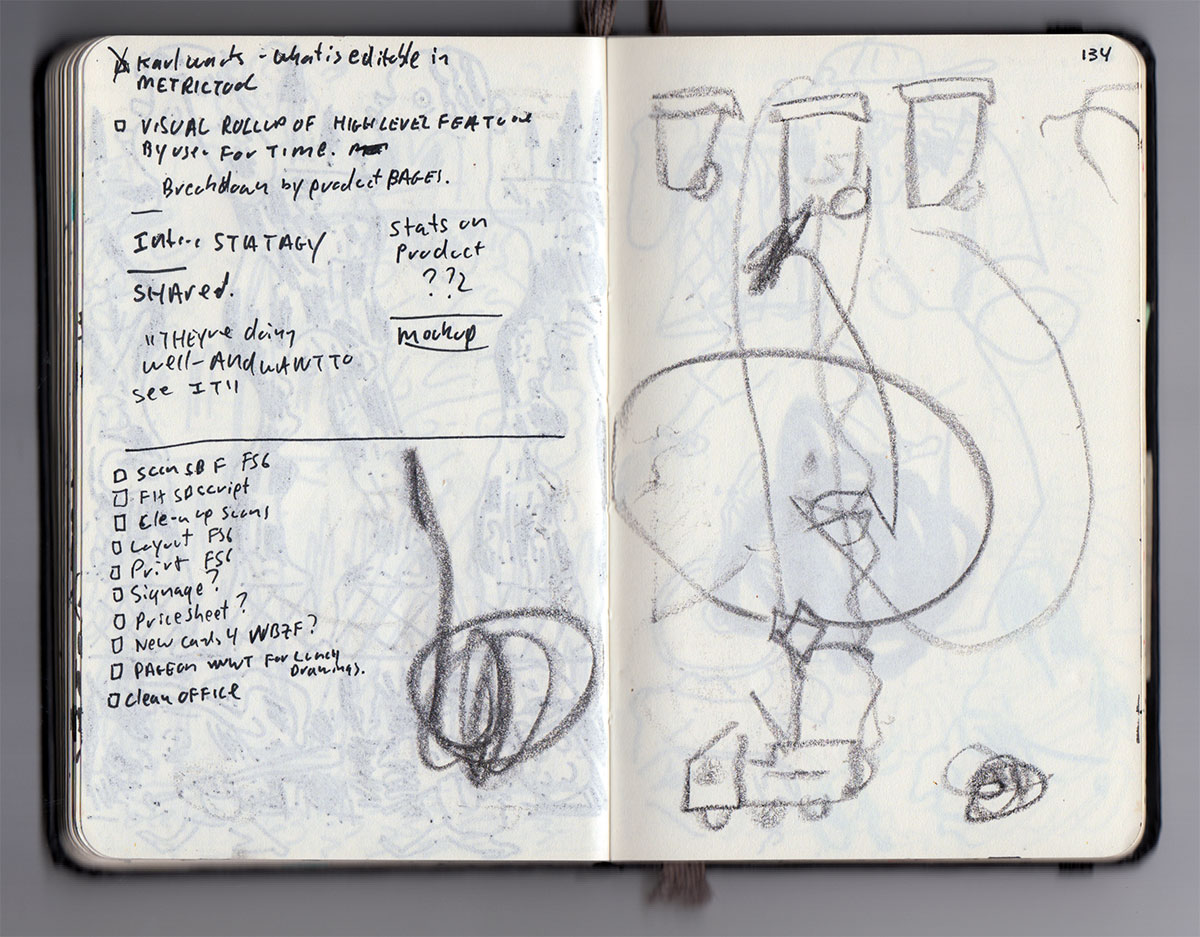 Karl wants - what is editable in
METRICTOOL
VISUAL ROLLUP OF HIGH LEVEL FEATURE
By user FOR TIME.
Breakdown by product PAGES.
STATAGY
SHAred.
"THEY're doing
well - AND WANT TO
see IT"
Stats on
Product
???
mockup
Scan SB F FS6
FH SB script
Clean up scans
Layout FS6
Print FS6
Signage?
Pricesheet?
New cards 4 WBZF?
PAGE on WWT For Lunch
Drawings.
Clean OFFICE
134